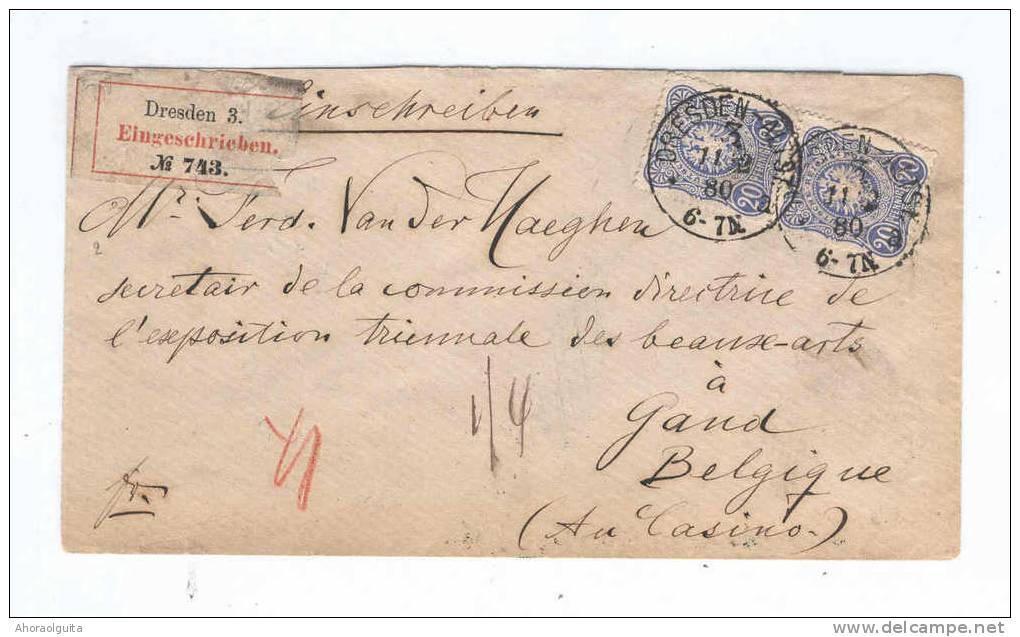 Einschreiben
Dresden 3.
Eingeschrieben.
№ 743.
DRESDEN ALTST.
3
11 2
80
6-7N.
a
20
20
11 2
80
6-7N
a
20
20
Mr. Ferd. Van der Haeghen
secretair de la commission directrice de
l'exposition triennale des beaux-arts
à
Gand
Belgique
(Au Casino.)
1/4
fr.
Ahoraolguita
delcampe.net